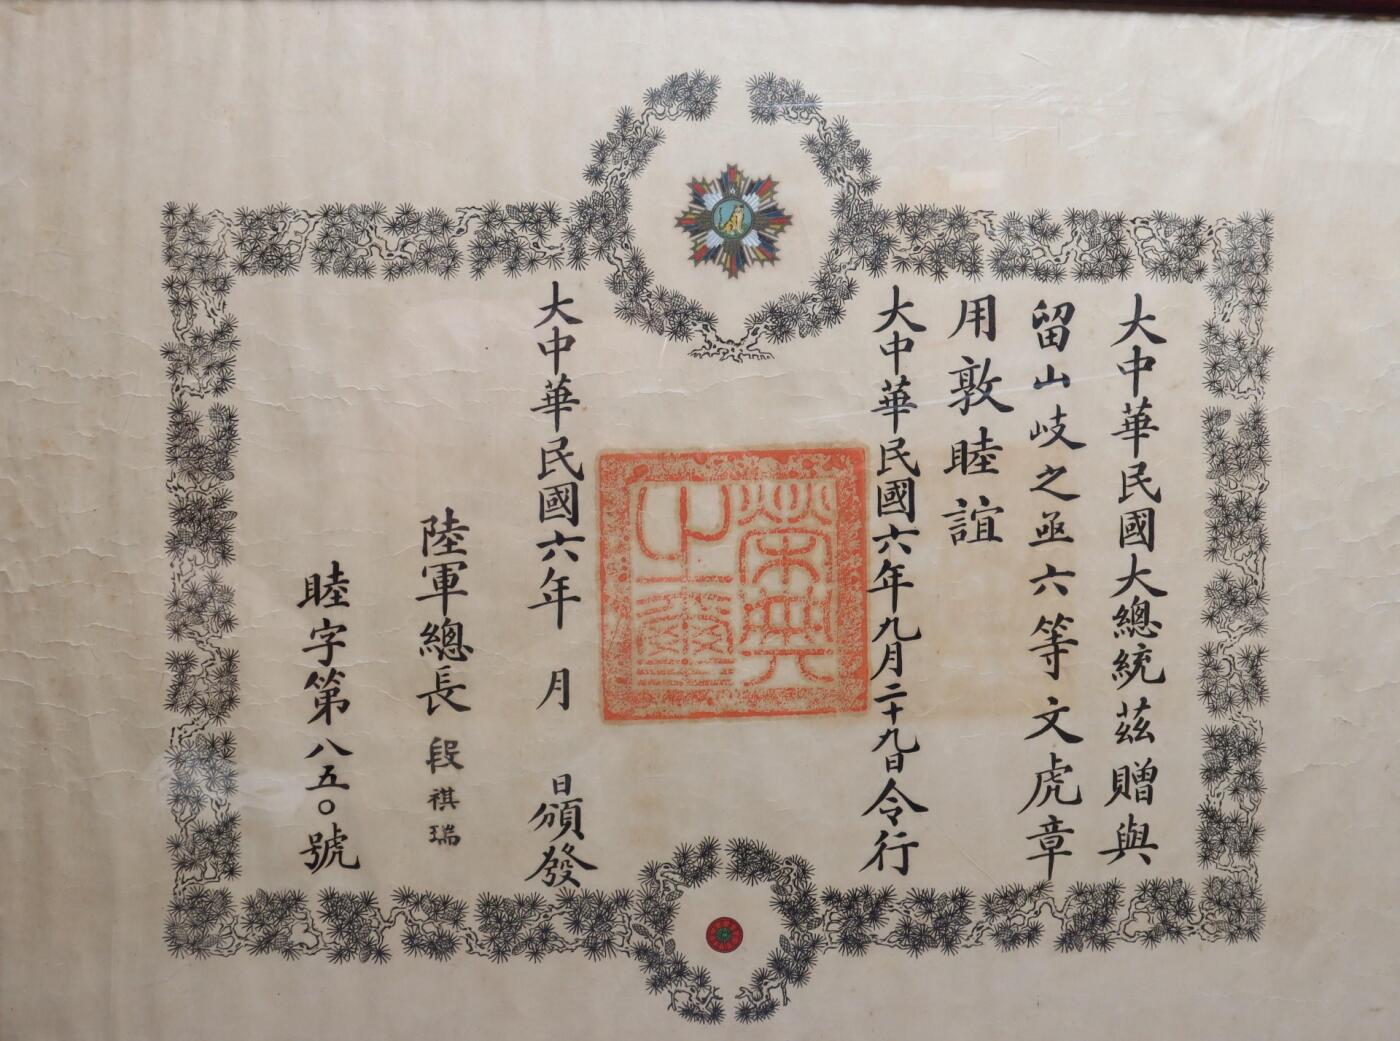 大中華民國大總統茲贈與
留山岐之亟六等文虎章
用敦睦誼
大中華民國六年九月二十九日令行
榮典之璽
大中華民國六年　月　日頒發
陸軍總長 段祺瑞
睦字第八五〇號